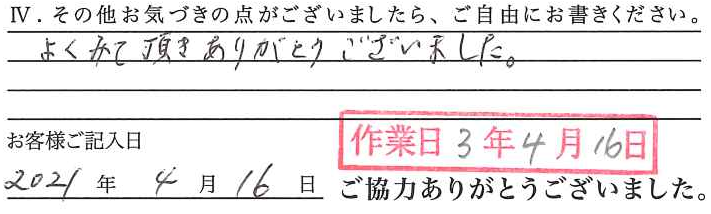 Ⅳ．その他お気づきの点がございましたら、ご自由にお書きください。
よくみて頂きありがとうございました。
お客様ご記入日
作業日 3年4月16日
2021年 4月16日
ご協力ありがとうございました。